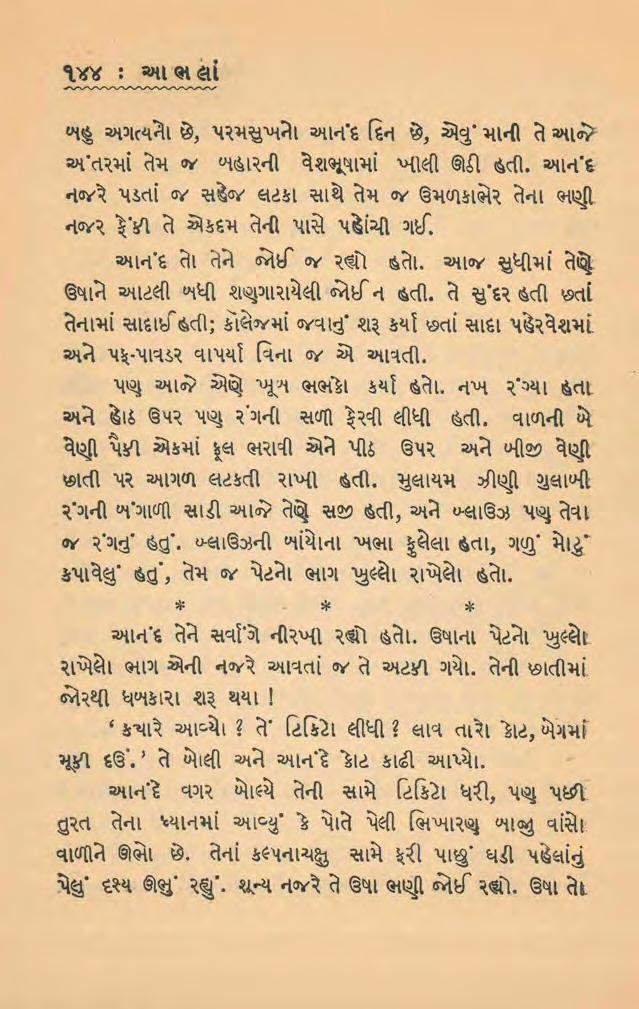 ૧૪૪ : આભલાં
બહુ અગત્યનો છે, પરમસુખનો આનંદ દિન છે, એવું માની તે આજે
અંતરમાં તેમ જ બહારની વેશભૂષામાં ખીલી ઊઠી હતી. આનંદ
નજરે પડતાં જ સહેજ લટકા સાથે તેમ જ ઉમળકાભેર તેના ભણી
નજર ફેંકી તે એકદમ તેની પાસે પહોંચી ગઈ.
આનંદ તો તેને જોઈ જ રહ્યો હતો. આજ સુધીમાં તેણે
ઉષાને આટલી બધી શણગારાયેલી જોઈ ન હતી. તે સુંદર હતી છતાં
તેનામાં સાદાઈ હતી; કૉલેજમાં જવાનું શરૂ કર્યા છતાં સાદા પહેરવેશમાં
અને પફ-પાવડર વાપર્યા વિના જ એ આવતી.
પણ આજે એણે ખૂબ ભભકો કર્યો હતો. નખ રંગ્યા હતા
અને હોઠ ઉપર પણ રંગની સળી ફેરવી લીધી હતી. વાળની બે
વેણી પૈકી એકમાં ફૂલ ભરાવી એને પીઠ ઉપર અને બીજી વેણી
છાતી પર આગળ લટકતી રાખી હતી. મુલાયમ ઝીણી ગુલાબી
રંગની બંગાળી સાડી આજે તેણે સજી હતી, અને બ્લાઉઝ પણ તેવા
જ રંગનું હતું. બ્લાઉઝની બાંયોના ખભા ફુલેલા હતા, ગળું મોટું
કપાવેલું હતું, તેમ જ પેટનો ભાગ ખુલ્લો રાખેલો હતો.
* * *
આનંદ તેને સર્વાંગે નીરખી રહ્યો હતો. ઉષાના પેટનો ખુલ્લો
રાખેલો ભાગ એની નજરે આવતાં જ તે અટકી ગયો. તેની છાતીમાં
જોરથી ધબકારા શરૂ થયા !
‘ ક્યારે આવ્યો ? તેં ટિકિટો લીધી ? લાવ તારો કોટ, બેગમાં
મૂકી દઉં.’ તે બોલી અને આનંદે કોટ કાઢી આપ્યો.
આનંદે વગર બોલ્યે તેની સામે ટિકિટો ધરી, પણ પછી
તુરત તેના ધ્યાનમાં આવ્યું કે પોતે પેલી ભિખારણ બાજુ વાંસો
વાળીને ઊભો છે. તેનાં કલ્પનાચક્ષુ સામે ફરી પાછું ઘડી પહેલાંનું
પેલું દૃશ્ય ઊભું રહ્યું. શૂન્ય નજરે તે ઉષા ભણી જોઈ રહ્યો. ઉષા તો